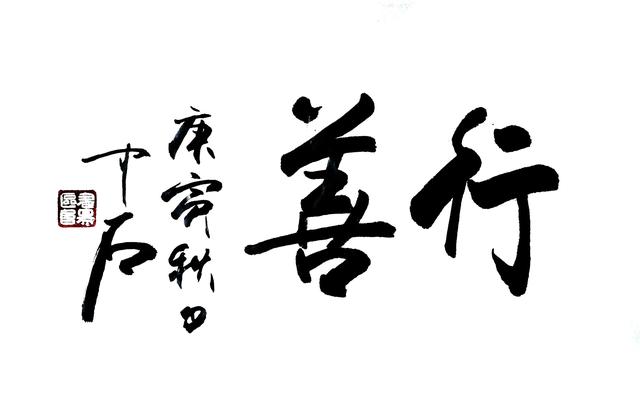 行善
庚寅秋日
中石